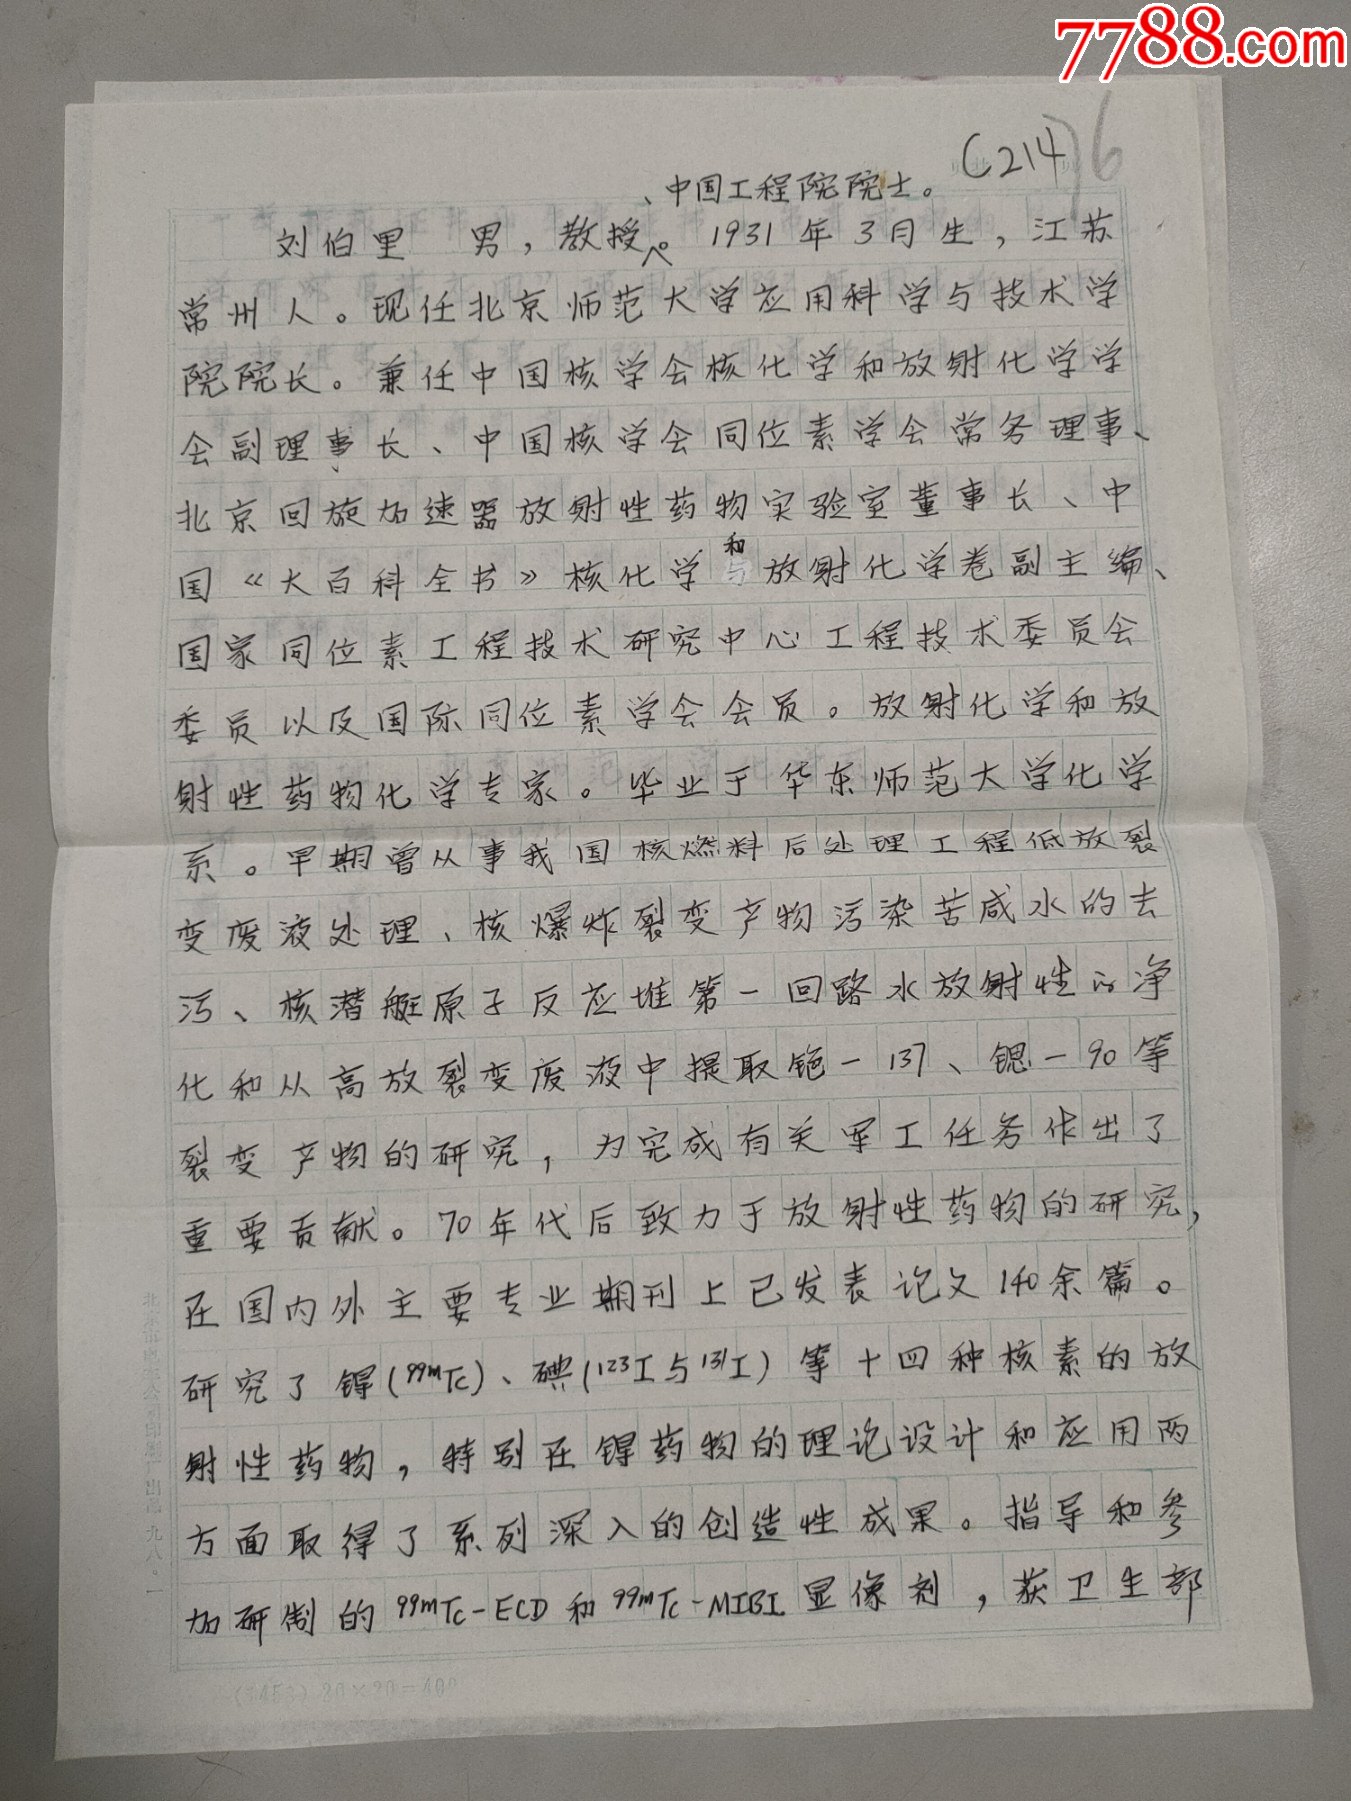 7788.com
(214) 6
、中国工程院院士。
刘伯里 男，教授。1931年3月生，江苏
常州人。现任北京师范大学应用科学与技术学
院院长。兼任中国核学会核化学和放射化学学
会副理事长、中国核学会同位素学会常务理事、
北京回旋加速器放射性药物实验室董事长、中
国《大百科全书》核化学和放射化学卷副主编、
国家同位素工程技术研究中心工程技术委员会
委员以及国际同位素学会会员。放射化学和放
射性药物化学专家。毕业于华东师范大学化学
系。早期曾从事我国核燃料后处理工程低放裂
变废液处理、核爆炸裂变产物污染苦咸水的去
污、核潜艇原子反应堆第一回路水放射性的净
化和从高放裂变废液中提取铯-137、锶-90等
裂变产物的研究，为完成有关军工任务作出了
重要贡献。70年代后致力于放射性药物的研究，
在国内外主要专业期刊上已发表论文140余篇。
研究了锝(⁹⁹ᵐTc)、碘(¹²³I与¹³¹I)等十四种核素的放
射性药物，特别在锝药物的理论设计和应用两
方面取得了系列深入的创造性成果。指导和参
加研制的⁹⁹ᵐTc-ECD和⁹⁹ᵐTc-MIBI显像剂，获卫生部
20×20=400